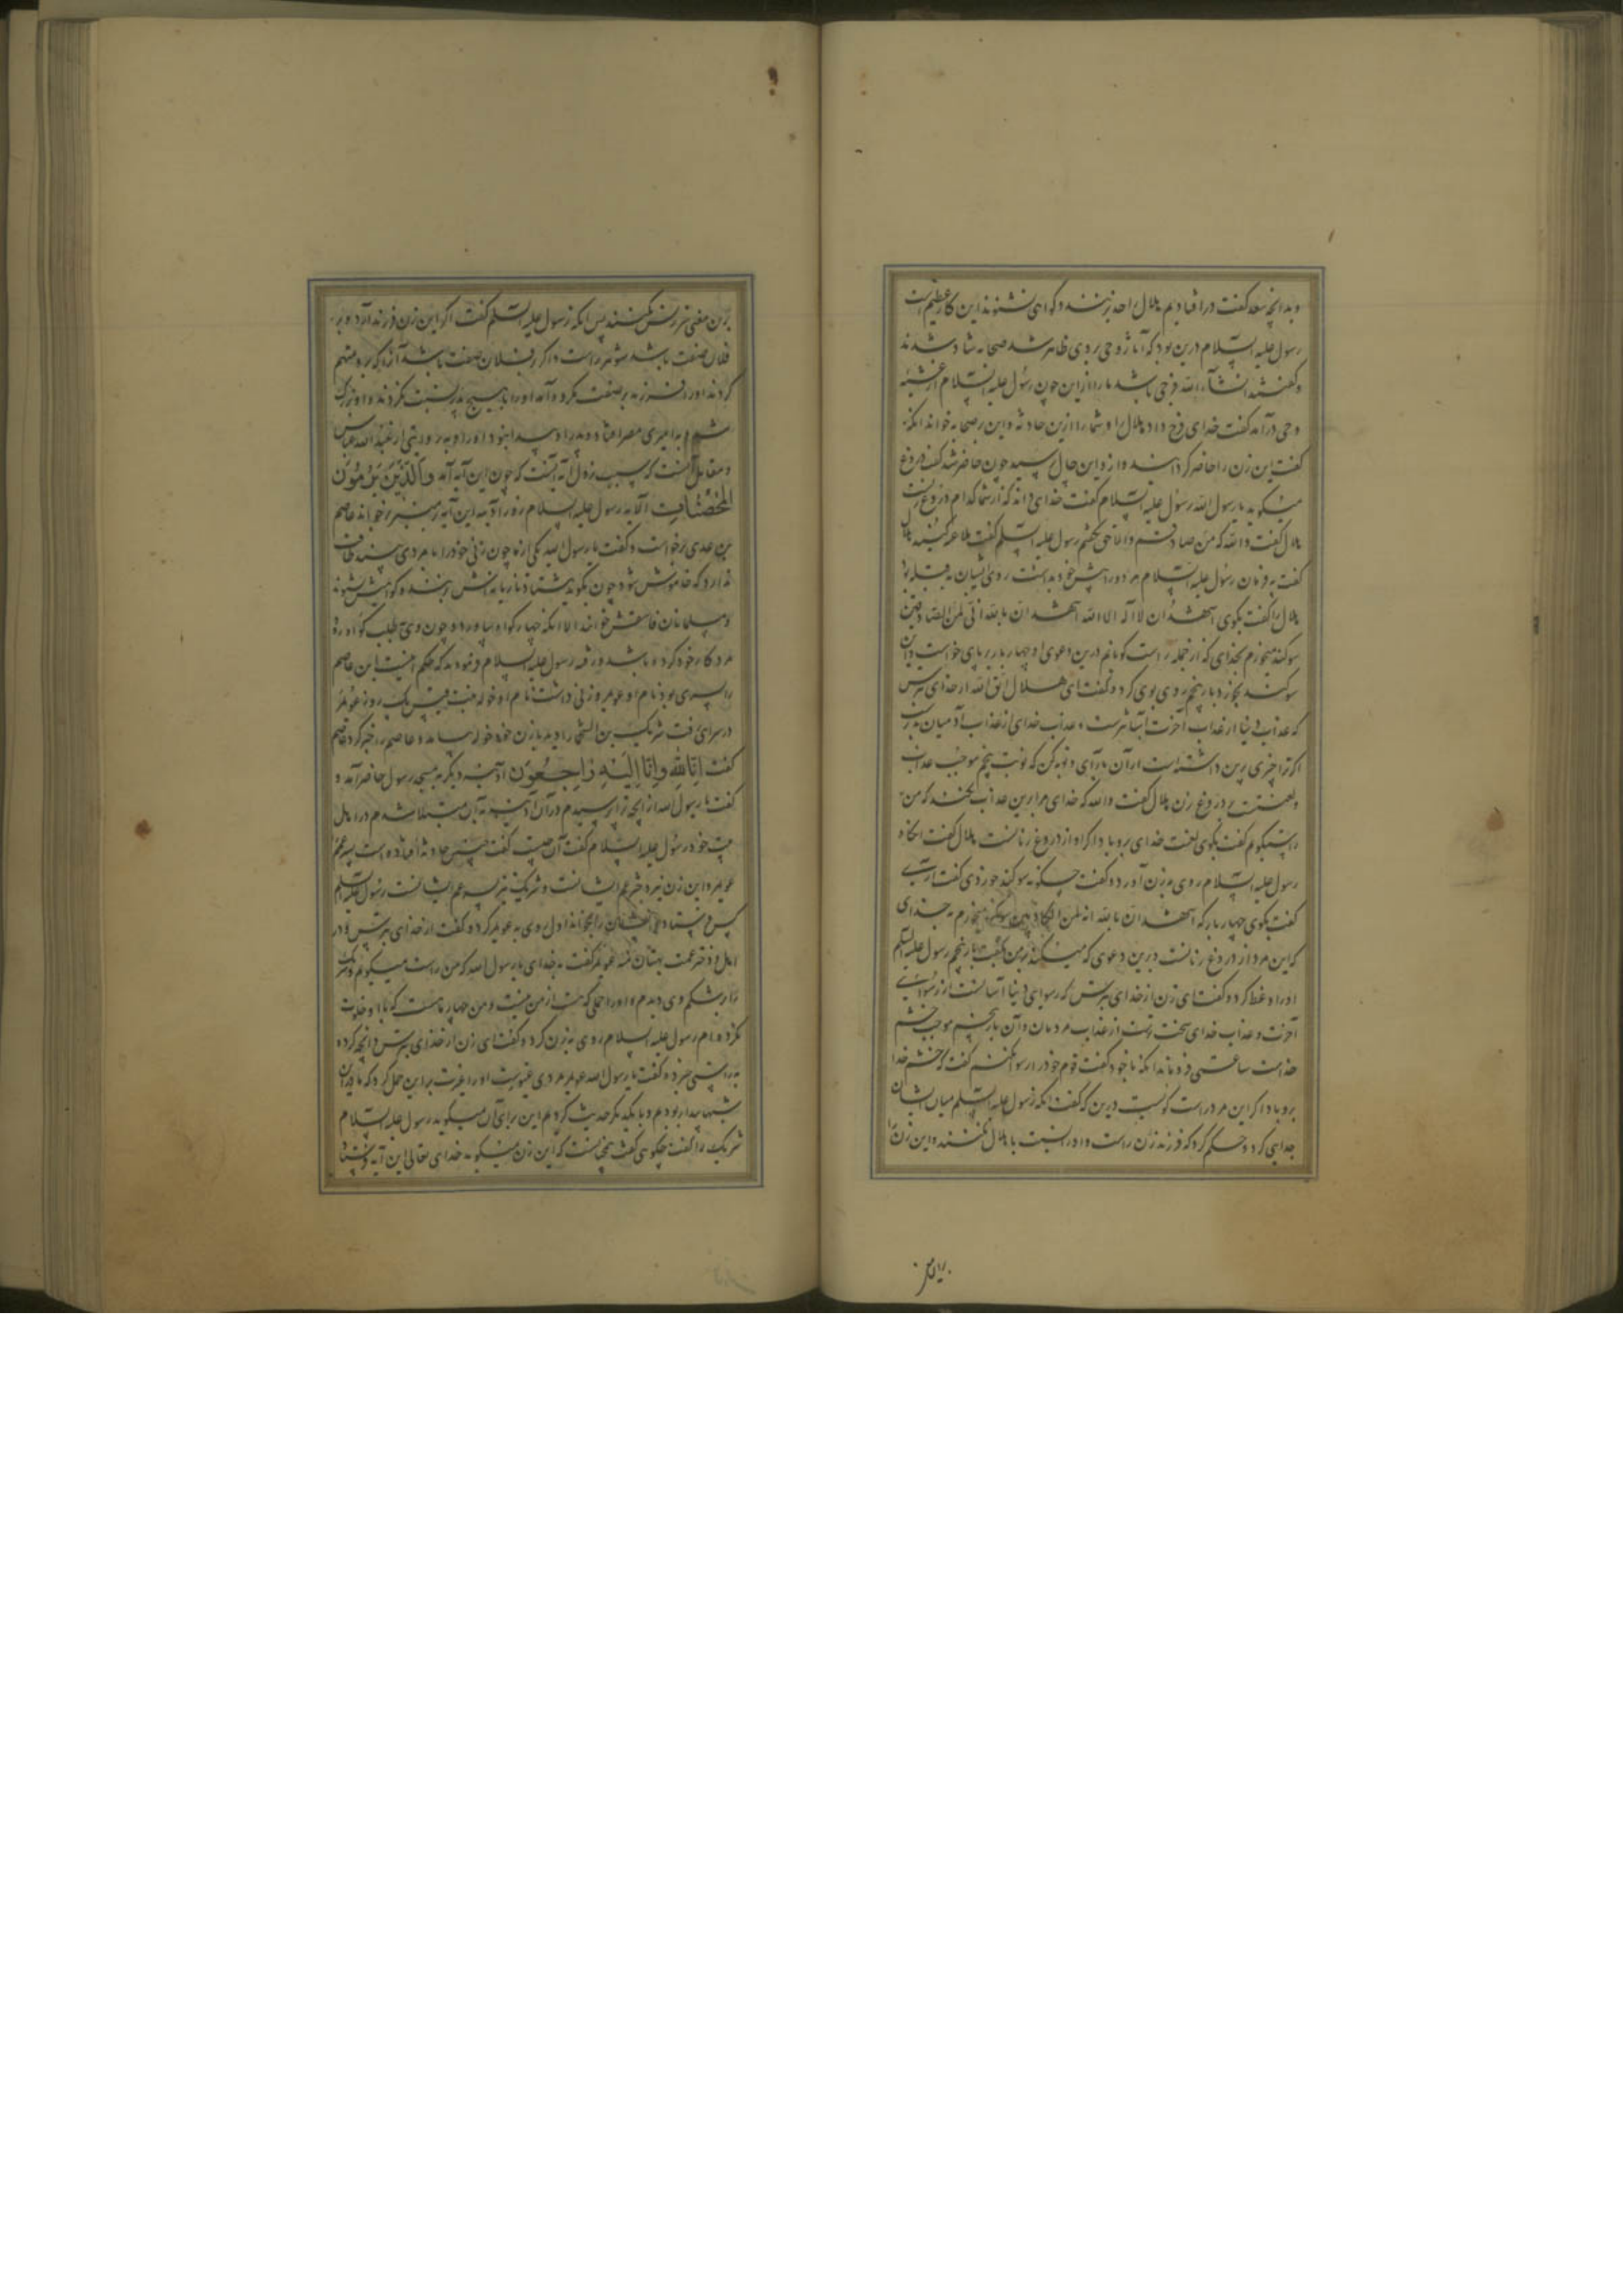 و بدانچه سعد گفت درافتادیم هلال را حد بزنند و گواهی نشنوند این کار عظیم است
رسول علیه السلام درین بود که آثار وحی بر وی ظاهر شد صحابه شاد شدند
و گفتند انشاء الله فرجی باشد ما را ازین چون رسول علیه السلام از غشیه
وحی درآمد گفت خدای فرج داد هلال را و شما را ازین حادثه و این بر صحابه خواند آنگه
گفت این زن را حاضر کردانید و از و این حال پرسید چون حاضر شد گفت دروغ
میگوید یا رسول الله رسول علیه السلام گفت خدای داند که از شما کدام دروغ زنست
هلال گفت والله که من صادقم و الا حق نگفتم رسول علیه السلام گفت ملاعنه کنید هلال
گفت به فرمان رسول علیه السلام هر دو را پیش خود بداشت روی ایشان به قبله بود
هلال را گفت بگوی اشهد ان لا اله الا الله اشهد ان بالله انی لمن الصادقین
سوگند میخورم بخدای که از جمله راست گویانم درین دعوی او چهار بار بر پای خواست و این
سوگند بخورد بار پنجم روی بوی کرد و گفت ای هلال اتق الله از خدای بترس
که عذاب دنیا از عذاب آخرت آسانترست و عذاب خدای از عذاب آدمیان بدتر
اگر ترا چیزی برین داشته است از آن بازآی و توبه کن که نوبت پنجم موجب عذاب
و لعنتست بر دروغ زن هلال گفت والله که خدای مرا برین عذاب نکند که من
راست میگویم گفت بگوی لعنت خدای برو بادا اگر او از دروغ زنانست هلال گفت آنگاه
رسول علیه السلام روی به زن آورد و گفت چگونه سوگند خوردی گفت آری
گفت بگوی چهار بار که اشهد ان بالله انه لمن الکاذبین سوگند میخورم به خدای
که این مرد از دروغ زنانست درین دعوی که میکند بر من بگفت بار پنجم رسول علیه السلام
او را وعظ کرد و گفت ای زن از خدای بترس که رسوایی دنیا آسانست از رسوایی
آخرت و عذاب خدای سخت ترست از عذاب مردمان و آن بار پنجم موجب خشم
خداست ساعتی فروماند آنگه با خود گفت قوم خود را رسوا نکنم گفت که خشم خدا
برو بادا اگر این مرد راست گوست درین که گفت آنگه رسول علیه السلام میان ایشان
جدایی کرد و حکم کرد که فرزند زن راست و او را نسبت با هلال نکنند و این زن را
برین
برین معنی سرزنش نکنند پس آنگه رسول علیه السلام گفت اگر این زن فرزند آرد و بر
فلان صفت باشد شوهر راست و اگر بر فلان صفت باشد آنرا که برو متهم
کردند او را فرزند بر صفت مکروه آمد او را با هیچ پدر نسبت نکردند و او بزرگ
شد و به امیری مصر افتاد و پدر او پیدا نبود او را و به روایتی از عبد الله عباس
و مقاتل آنست که سبب نزول آیه آنست که چون این آیه آمد والذین یرمون
المحصنات الآیه رسول علیه السلام روز آدینه این آیه بر منبر بر خواند عاصم
بن عدی برخواست و گفت یا رسول الله یکی از ما چون زنی خود را با مردی بیند طاقت
ندارد که خاموش شود چون بگوید هشتاد تازیانه اش بزنند و گواهیش نشنوند
و مسلمانان فاسقش خوانند الا آنکه چهار گواه بیاورد و چون وی به طلب گواه رود
مرد کار خود کرده باشد و رفته رسول علیه السلام فرمود که حکم اینست ابن عاصم
را پسری بود نام او عویمر و زنی داشت نام او خوله بنت قیس یک روز عویمر
در سرای رفت شریک بن السحما را دید با زن خود خوله بیامد و عاصم را خبر کرد عاصم
گفت انا لله وانا الیه راجعون آدینه دیگر به مسجد رسول حاضر آمد و
گفت یا رسول الله از آنچه ترا پرسیدم در آن آدینه به آن مبتلا شدم در اهل
بیت خود رسول علیه السلام گفت آن چیست گفت چنین حادثه افتاده است پسر عمم
عویمر و این زن نیز دختر عم ایشانست و شریک نیز پسر عم ایشانست رسول علیه السلام
کس فرستاد و ایشان را بخواند اول روی به عویمر کرد و گفت از خدای بترس و در
اهل و دختر عمت بهتان منه عویمر گفت به خدای یا رسول الله که من راست میگویم و شریک
را بر شکم وی دیدم و او را حملی که هست از من نیست و من چهار ماهست که با او خلوت
نکرده ام رسول علیه السلام روی به زن کرد و گفت ای زن از خدای بترس و آنچه کرده
به راستی خبر ده گفت یا رسول الله عویمر مردی غیورست او را غیرت بر این حمل کرد که ما دیدن
شبها بیدار بودیم و با یکدیگر حدیث کردیم این برای آن میگوید رسول علیه السلام
شریک را گفت چگویی گفت همچنانست که این زن میگوید خدای تعالی این آیه فرستاد